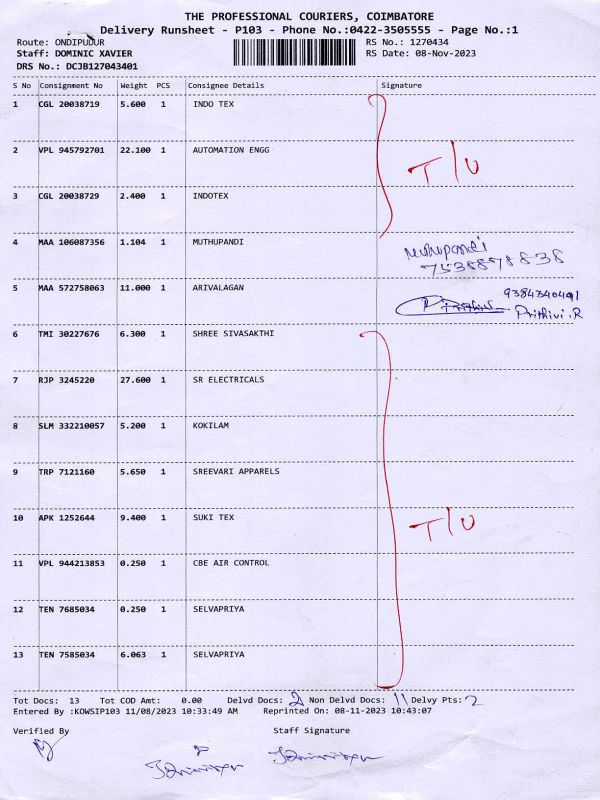 THE PROFESSIONAL COURIERS, COIMBATORE
Delivery Runsheet - P103 - Phone No.:0422-3505555 - Page No.:1
Route: ONDIPUDUR RS No.: 1270434
Staff: DOMINIC XAVIER RS Date: 08-Nov-2023
DRS No.: DCJB127043401
S No Consignment No Weight PCS Consignee Details Signature
1 CGL 20038719 5.600 1 INDO TEX
2 VPL 945792701 22.100 1 AUTOMATION ENGG
T/U
3 CGL 20038729 2.400 1 INDOTEX
4 MAA 106087356 1.104 1 MUTHUPANDI Muthupandi
7538878838
5 MAA 572758063 11.000 1 ARIVALAGAN 9384340491
Prithivi.R
6 TMI 30227676 6.300 1 SHREE SIVASAKTHI
7 RJP 3245220 27.600 1 SR ELECTRICALS
8 SLM 332210057 5.200 1 KOKILAM
9 TRP 7121160 5.650 1 SREEVARI APPARELS
10 APK 1252644 9.400 1 SUKI TEX T/U
11 VPL 944213853 0.250 1 CBE AIR CONTROL
12 TEN 7685034 0.250 1 SELVAPRIYA
13 TEN 7585034 6.063 1 SELVAPRIYA
Tot Docs: 13 Tot COD Amt: 0.00 Delvd Docs: 2 Non Delvd Docs: 11 Delvy Pts: 2
Entered By :KOWSIP103 11/08/2023 10:33:49 AM Reprinted On: 08-11-2023 10:43:07
Verified By Staff Signature